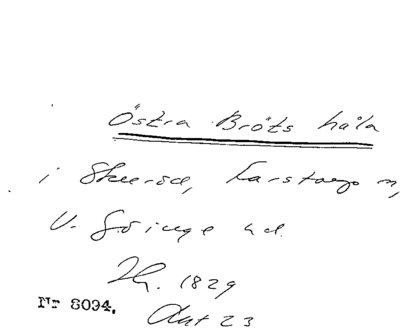 Östra Bröts håla
i Skeröd, Farstorps sn,
V. Göinge hd.
Th. 1829
Nr 8094.
Ant 23